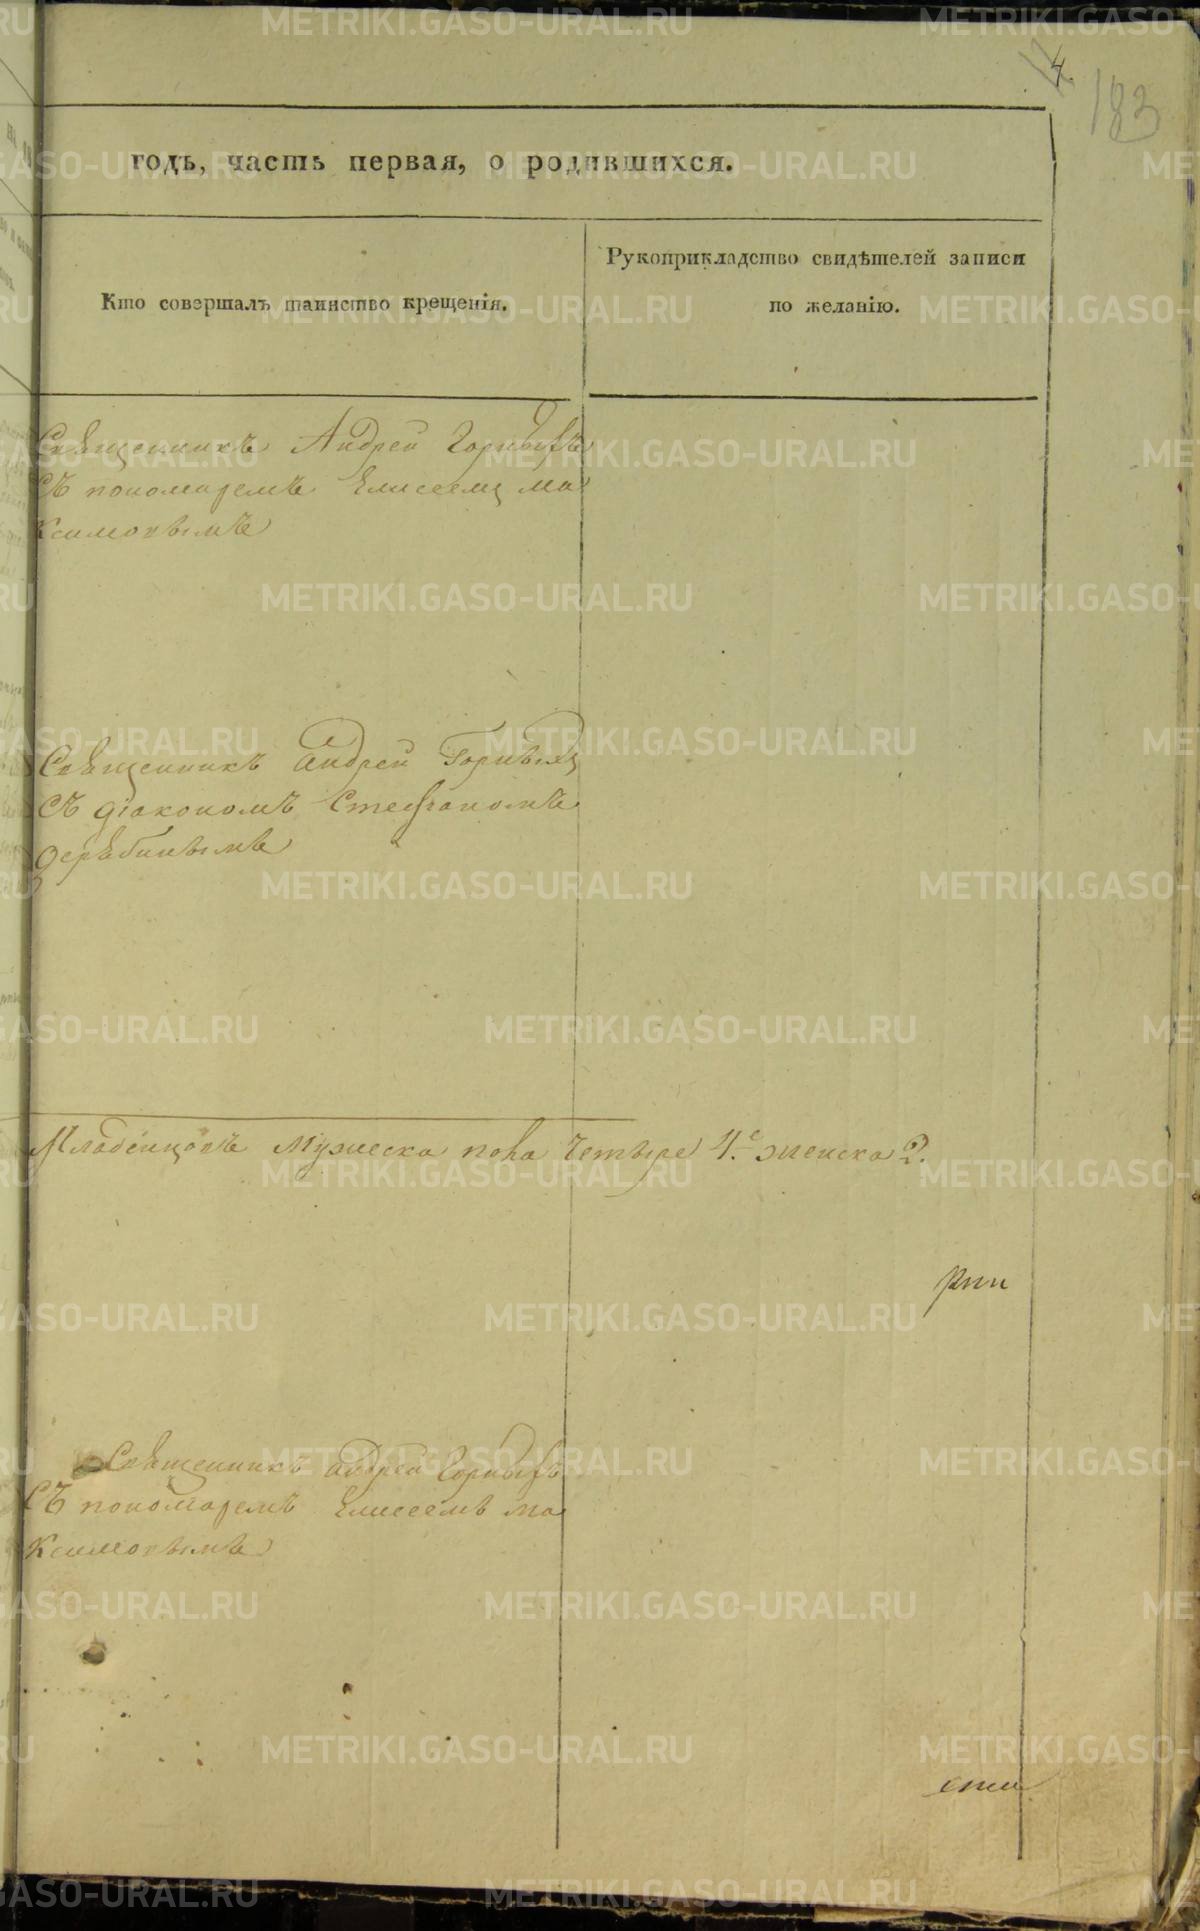 4.
183
годъ, часть первая, о родившихся.
Кто совершалъ таинство крещенія.
Рукоприкладство свидѣтелей записи
по желанію.
Священникъ Андрей Горныхъ
съ пономаремъ Елисеемъ Ма
ксимовымъ
Священникъ Андрей Горныхъ
съ діакономъ Стефаномъ
Дерябинымъ
Младенцовъ мужеска пола четыре 4. женска 2.
Священникъ Андрей Горныхъ
съ пономаремъ Елисеемъ Ма
ксимовымъ
METRIKI.GASO-URAL.RU